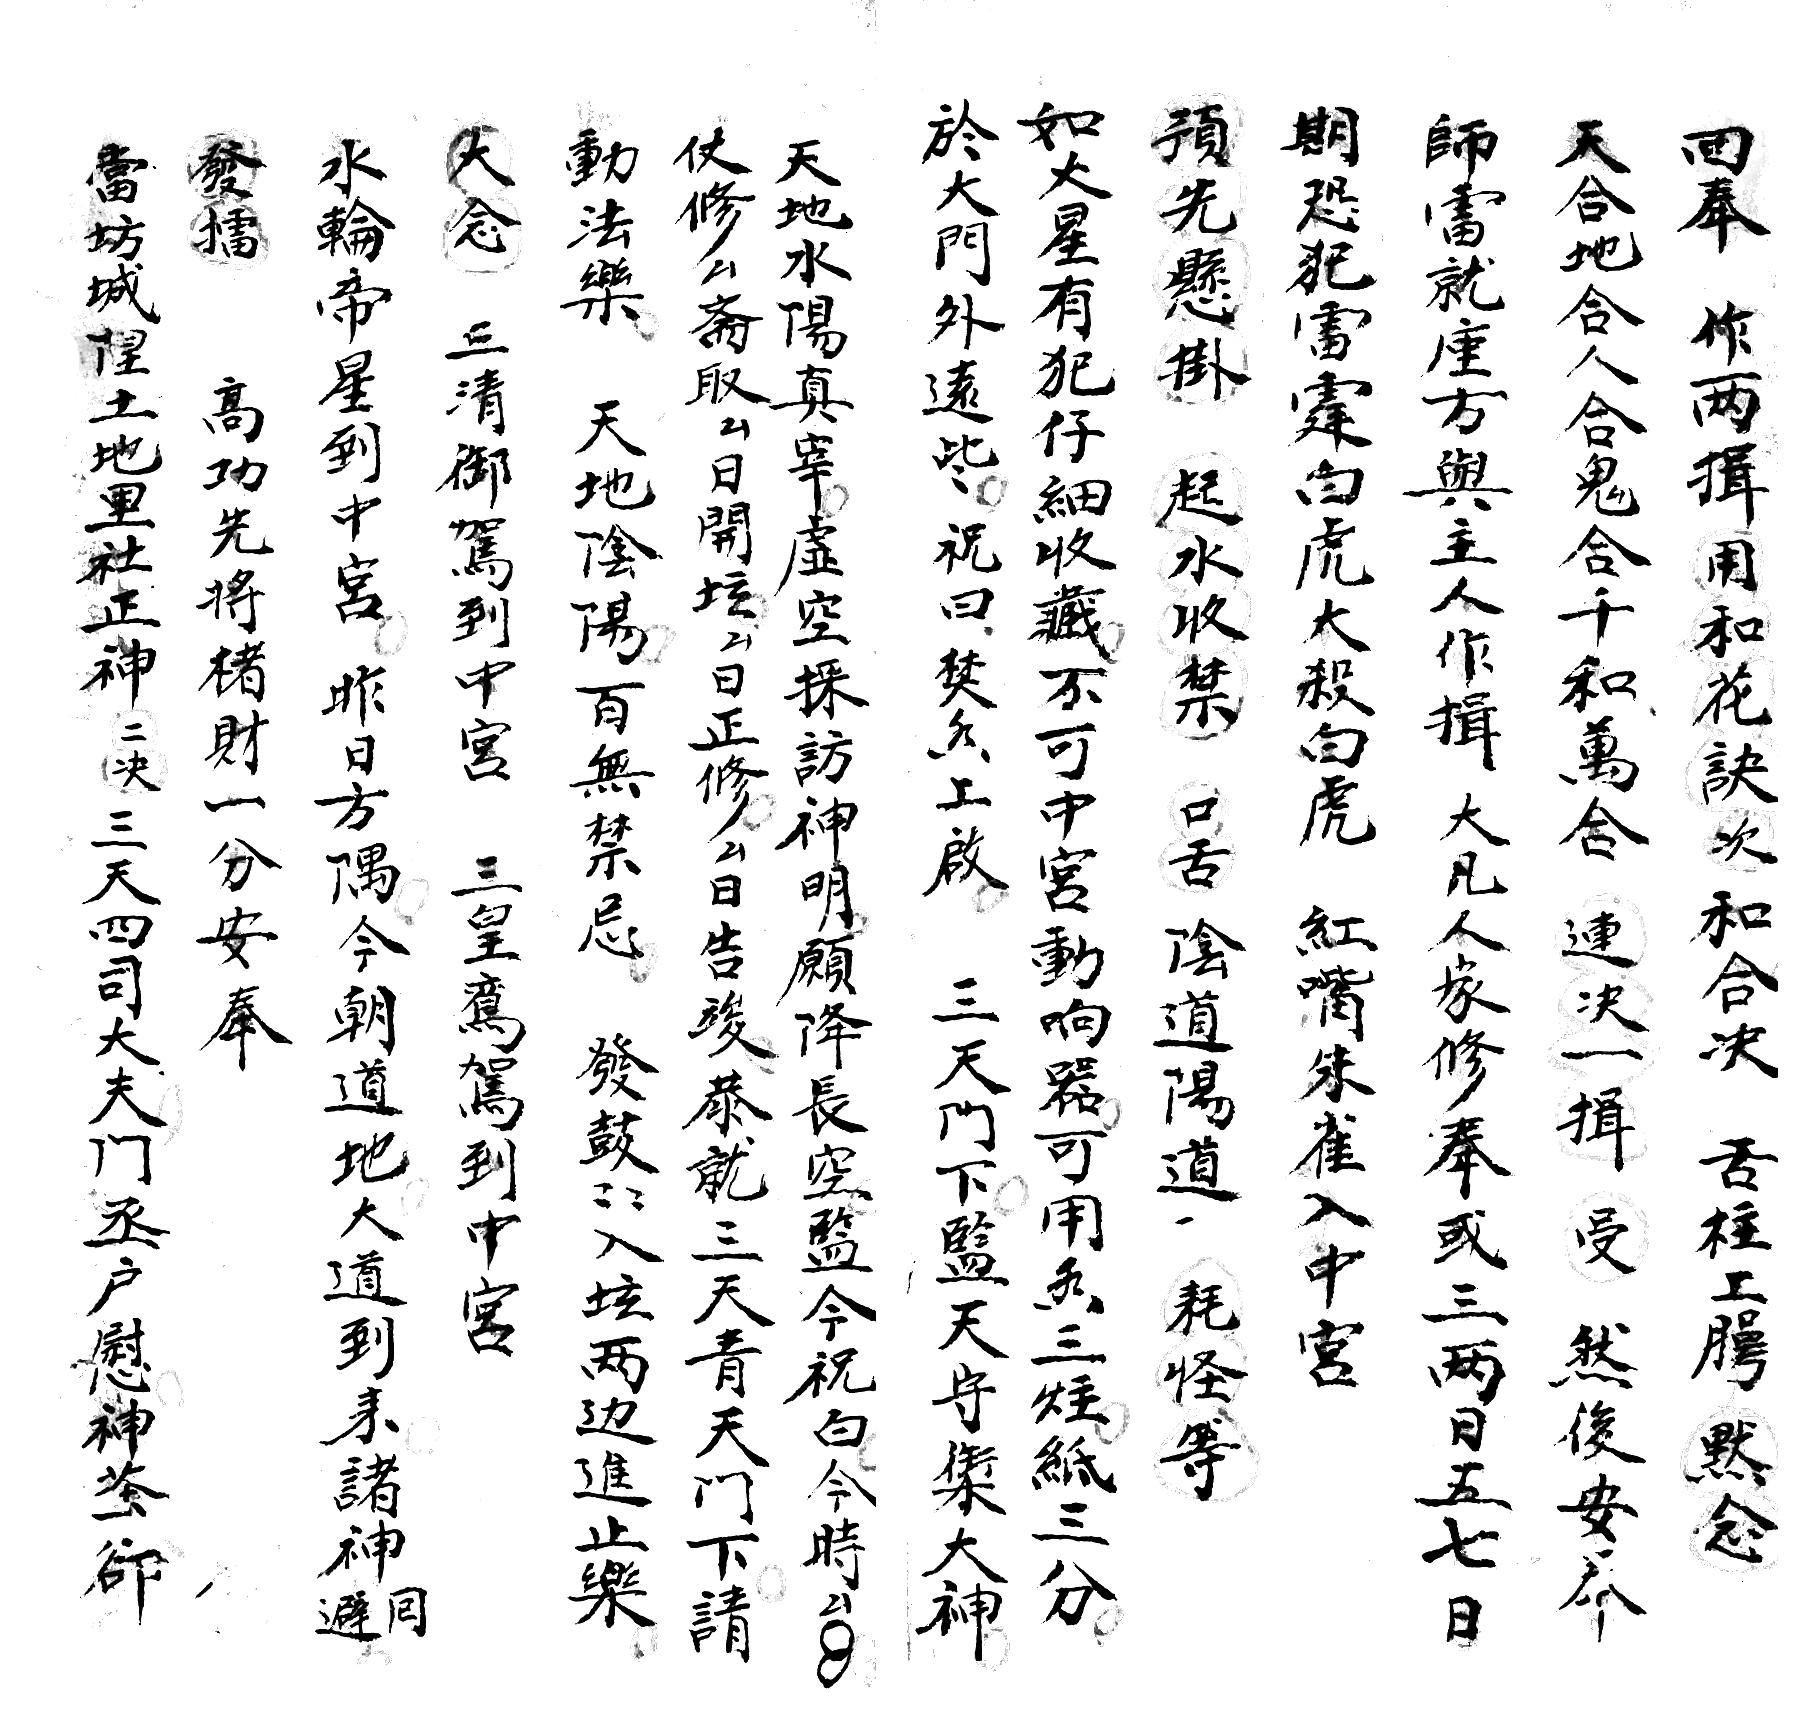 回奉　作两揖用和花訣次和合决　舌柱工腭　默念
天合地合人合鬼合千和萬合　連决一揖　受　然後安奉
師雷就座方與主人作揖　大凡人家修奉或三两日五七日
期恐犯雷霆白虎大殺白虎　紅嘴朱雀入中宮
預先懸掛　起水收禁　口舌　陰道陽道　耗怪等
如火星有犯仔細收藏不可中宮動响器可用炁三炷紙三分
於大門外遠些　祝曰　焚炁上啟　三天門下監天守禁大神
天地水陽真宰虛空採訪神明願降長空監今祝白今時厶
仗修厶厶齋取厶日開坛厶日正修厶日告竣恭就三天青天門下請
動法樂　天地陰陽百無禁忌　發鼓 入坛两边進止樂
大念　三清御駕到中宮　三皇鸞駕到中宮
水輪帝星到中宮　昨日方隅今朝道地大道到来諸神回避
發擂　高功先將楮財一分安奉
當坊城隍土地里社正神　二决　三天四司大夫门丞户慰神荼